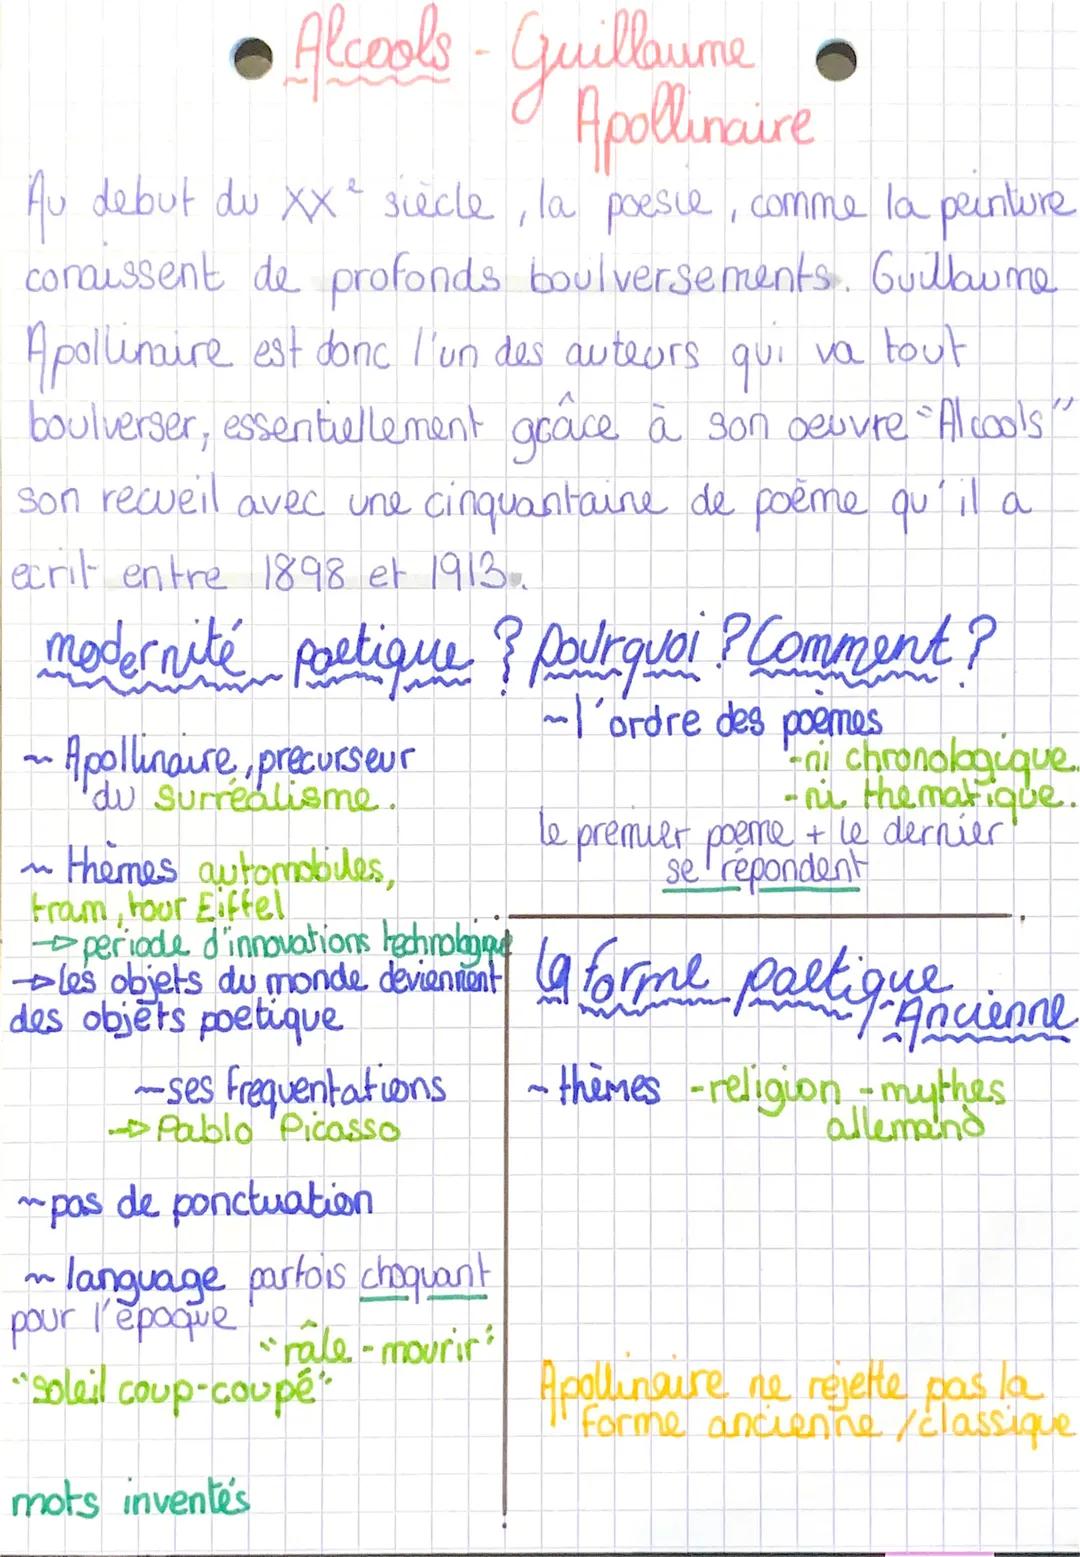 Alcools - Guillaume
Apollinaire
Au debut du XXe siècle, la poesie, comme la peinture
conaissent de profonds boulversements. Guillaume
Apollinaire est donc l'un des auteurs qui va tout
boulverser, essentiellement grâce à son oeuvre "Alcools"
son recueil avec une cinquantaine de poème qu'il a
ecrit entre 1898 et 1913.
modernité poetique ? pourquoi ? Comment ?
~ Apollinaire, precurseur
du surréalisme.
~ thèmes automobiles,
tram, tour Eiffel
→ periode d'innovations technologique
→ les objets du monde deviennent
des objets poetique
~ ses frequentations
→ Pablo Picasso
~ pas de ponctuation
~ language parfois choquant
pour l'époque
"râle - mourir"
"soleil coup-coupé"
mots inventés
~ l'ordre des poèmes
- ni chronologique.
- ni thematique.
le premier poeme + le dernier
se répondent
la forme poetique
- Ancienne
~ thèmes - religion - mythes
allemand
Apollinaire ne rejette pas la
forme ancienne / classique